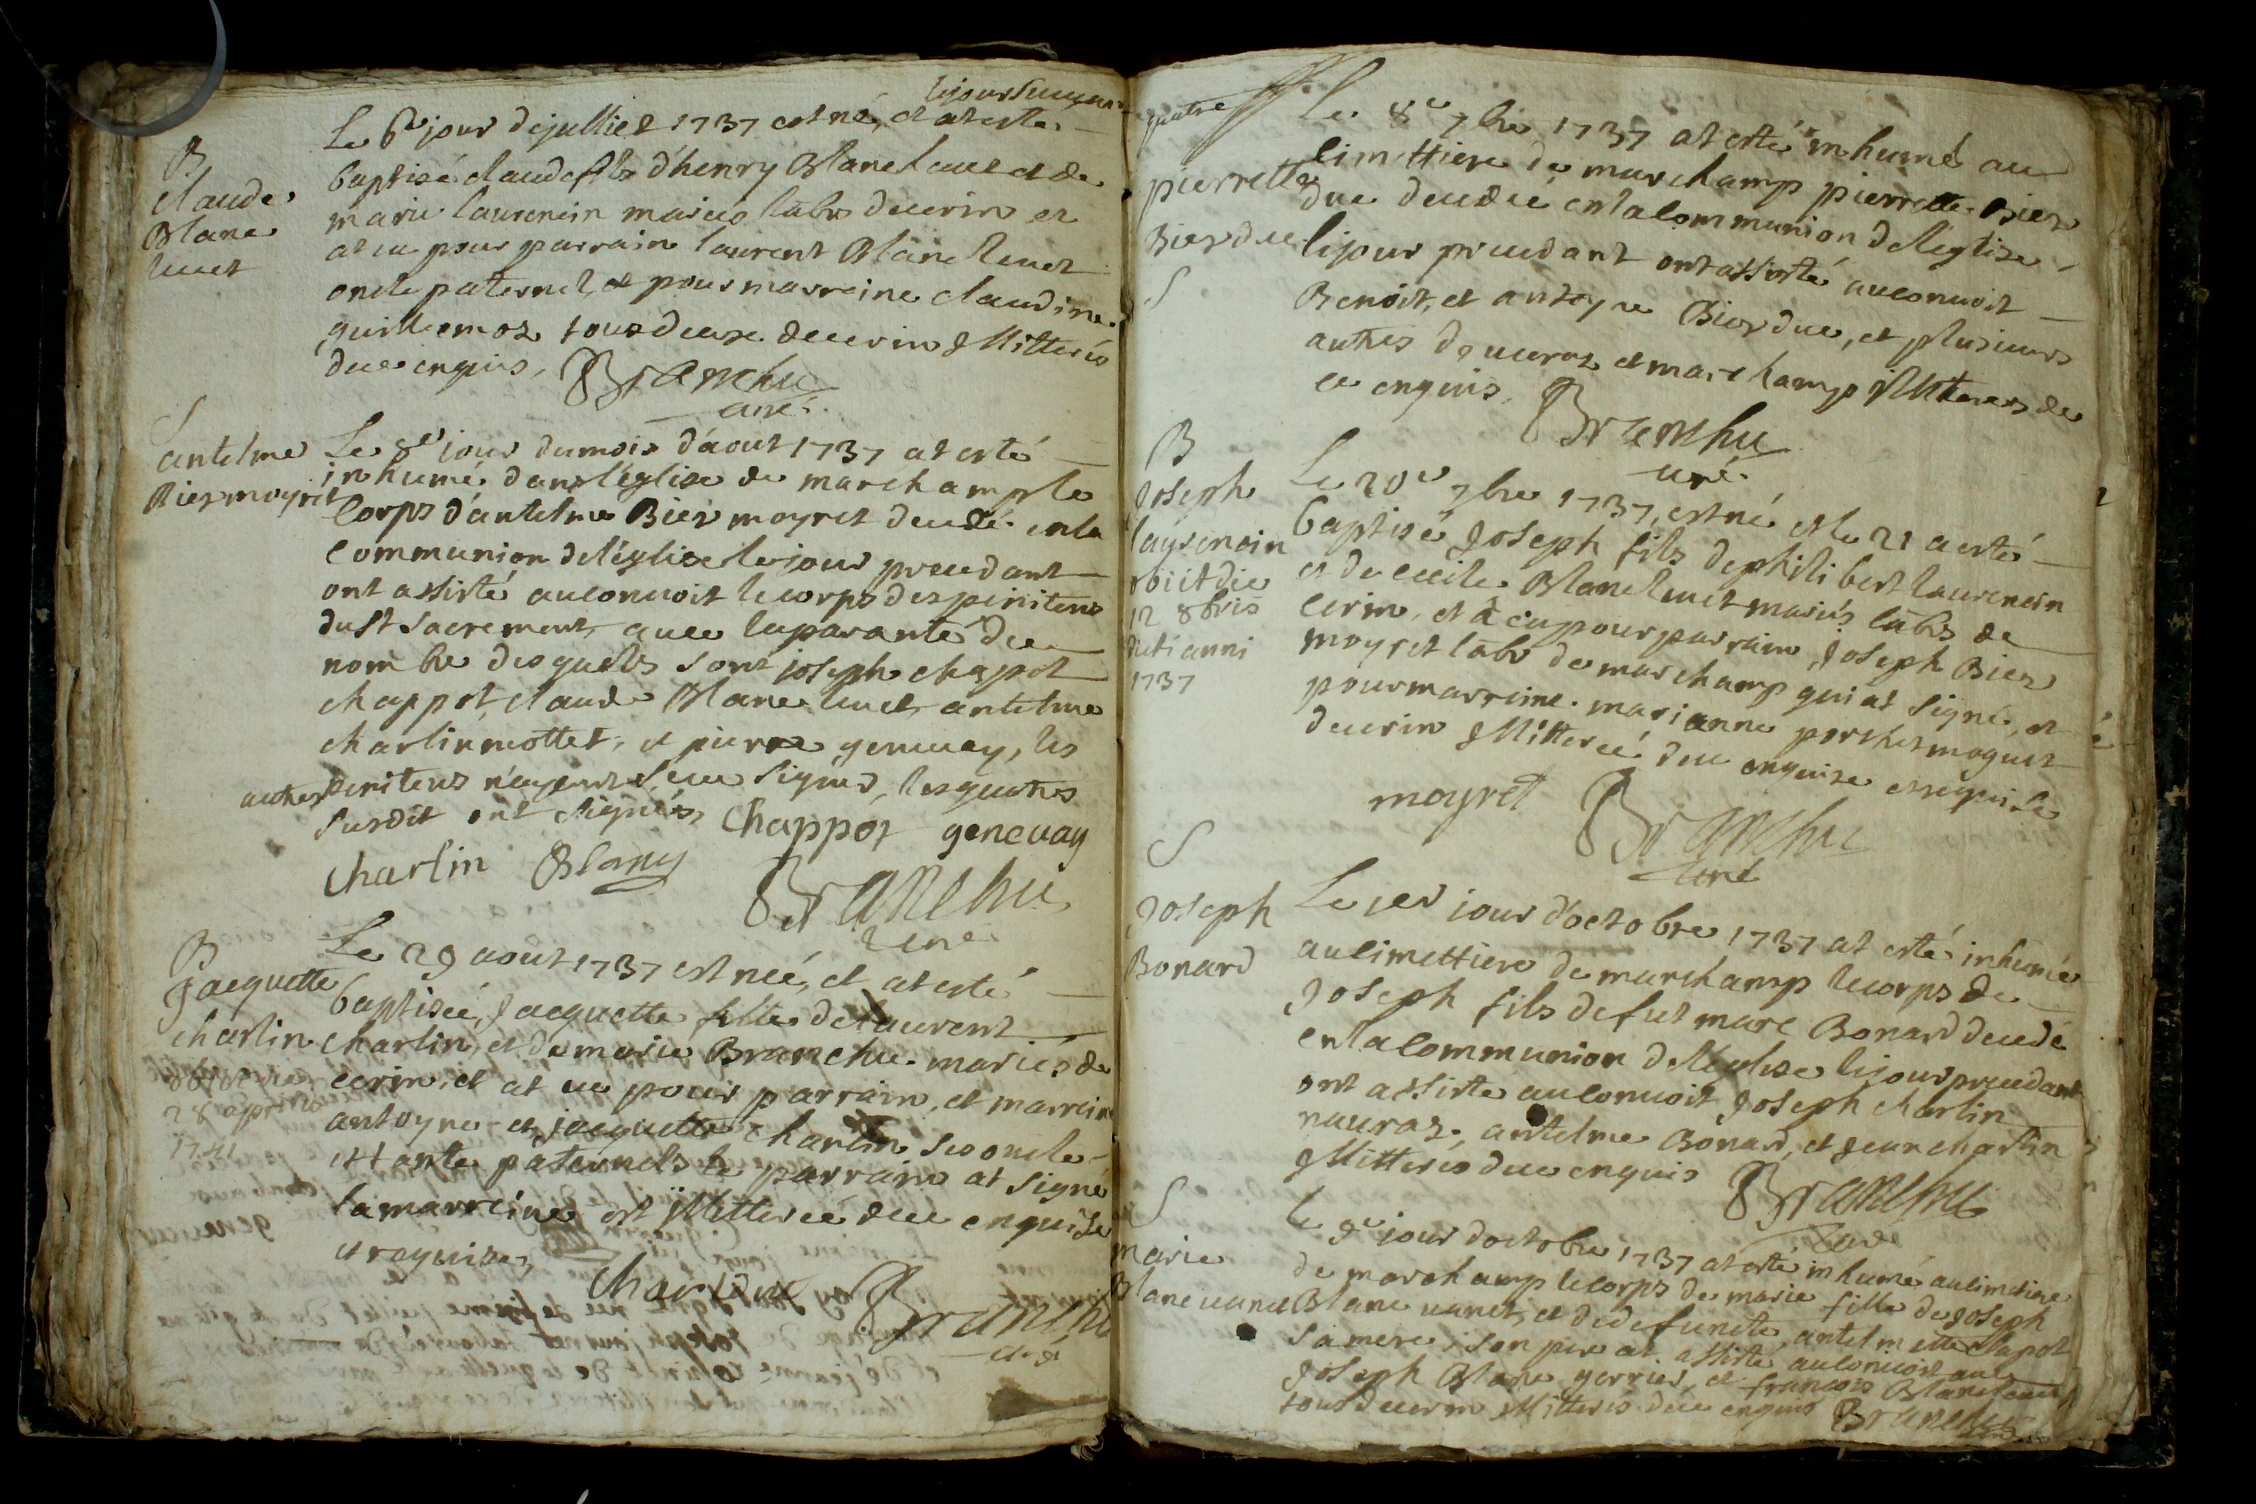 Le 6e jour de julliet 1737 est né, et at esté le jour suivant
B
Claude
Blanc
luuet
baptisé claude fils d'henry Blanc luuet et de
marie laurencin mariés labrs de cerin et
at eu pour parrain laurent Blanc luuet
oncle paternel, et pour marreine claudine
guillemoz tous deux de cerin et illiterés
due enquis, Branchu
curé.
S
antelme
Bier moyret
Le 8e jour du mois d'aout 1737 at esté
inhumé dans l'église de marchamp le
corps d'antelme Bier moyret decedé en la
communion de l'église le jour precedant
ont assisté au convoit le corps des penitens
du St Sacrement, avec la paranté de
nombre desquels sont joseph chapot
chappot, claude Blanc luuet, antelme
charlin mottet, et pierre genevay, les
autres penitens n'ayant sceu signés, les quatres
susdit ont signés, Chappot genevay
charlin Blanc
Branchu
curé
B
Jacquette
charlin
obiit die
28 aprilis
1741
Le 29 aout 1737 est née, et at esté
baptisée, Jacquette fille de laurent
charlin, et de marie Branchu mariés de
cerin, et at eu pour parrain, et marreine
antoyne et jacquette charlin ses oncle
et tante paternels le parrain at signé
la marreine est illitterée due enquise
et requise,
charlin Branchu
curé
quatre
pierrette
Bier due
S
Le 8e 7bre 1737 at esté inhumé au
cimettiere de marchamp pierrette Bier
due decedée en la communion de l'église
le jour precedant ont assisté au convoit
Benoit, et antoyne Bier due, et plusieurs
autres de ceroz et marchamp illiterés de
ce enquis, Branchu
curé.
B
Joseph
laurencin
obiit die
12 8bris
dicti anni
1737
Le 20e 7bre 1737, est né et le 21 a esté
baptisé Joseph fils de philibert laurencin
et de cecile Blanc luuet mariés labrs de
cerin, et a eu pour parrain, Joseph Bier
moyret labr de marchamp qui at signé, et
pour marreine marianne perchet moguet
de cerin illitterée due enquise et requise
moyret Branchu
curé
S
Joseph
Bonard
Le 1er jour d'octobre 1737 at esté inhumé
au cimettiere de marchamp le corps de
Joseph fils de fut marc Bonard decedé
en la communion de l'église le jour precedant
ont assisté au convoit Joseph charlin
nauraz, antelme Bonard, et jean charlin
illitterés due enquis Branchu
curé
S
marie
Blanc vanet
Le 9e jour d'octobre 1737 at esté inhumé au cimetiere
de marchamp le corps de marie fille de Joseph
Blanc vanet, et de defuncte, antelmette chapot
sa mere, son pere at assisté au convoit avec
Joseph Blanc gerrier et françois Blanc luuet
tous de cerin illitterés due enquis Branchu